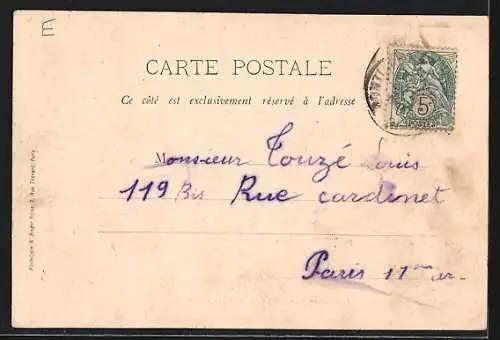 E
CARTE POSTALE
Ce côté est exclusivement réservé à l'adresse
5c
POSTES
Monsieur Touzé Louis
119 Bis Rue cardinet
Paris 11me ar-